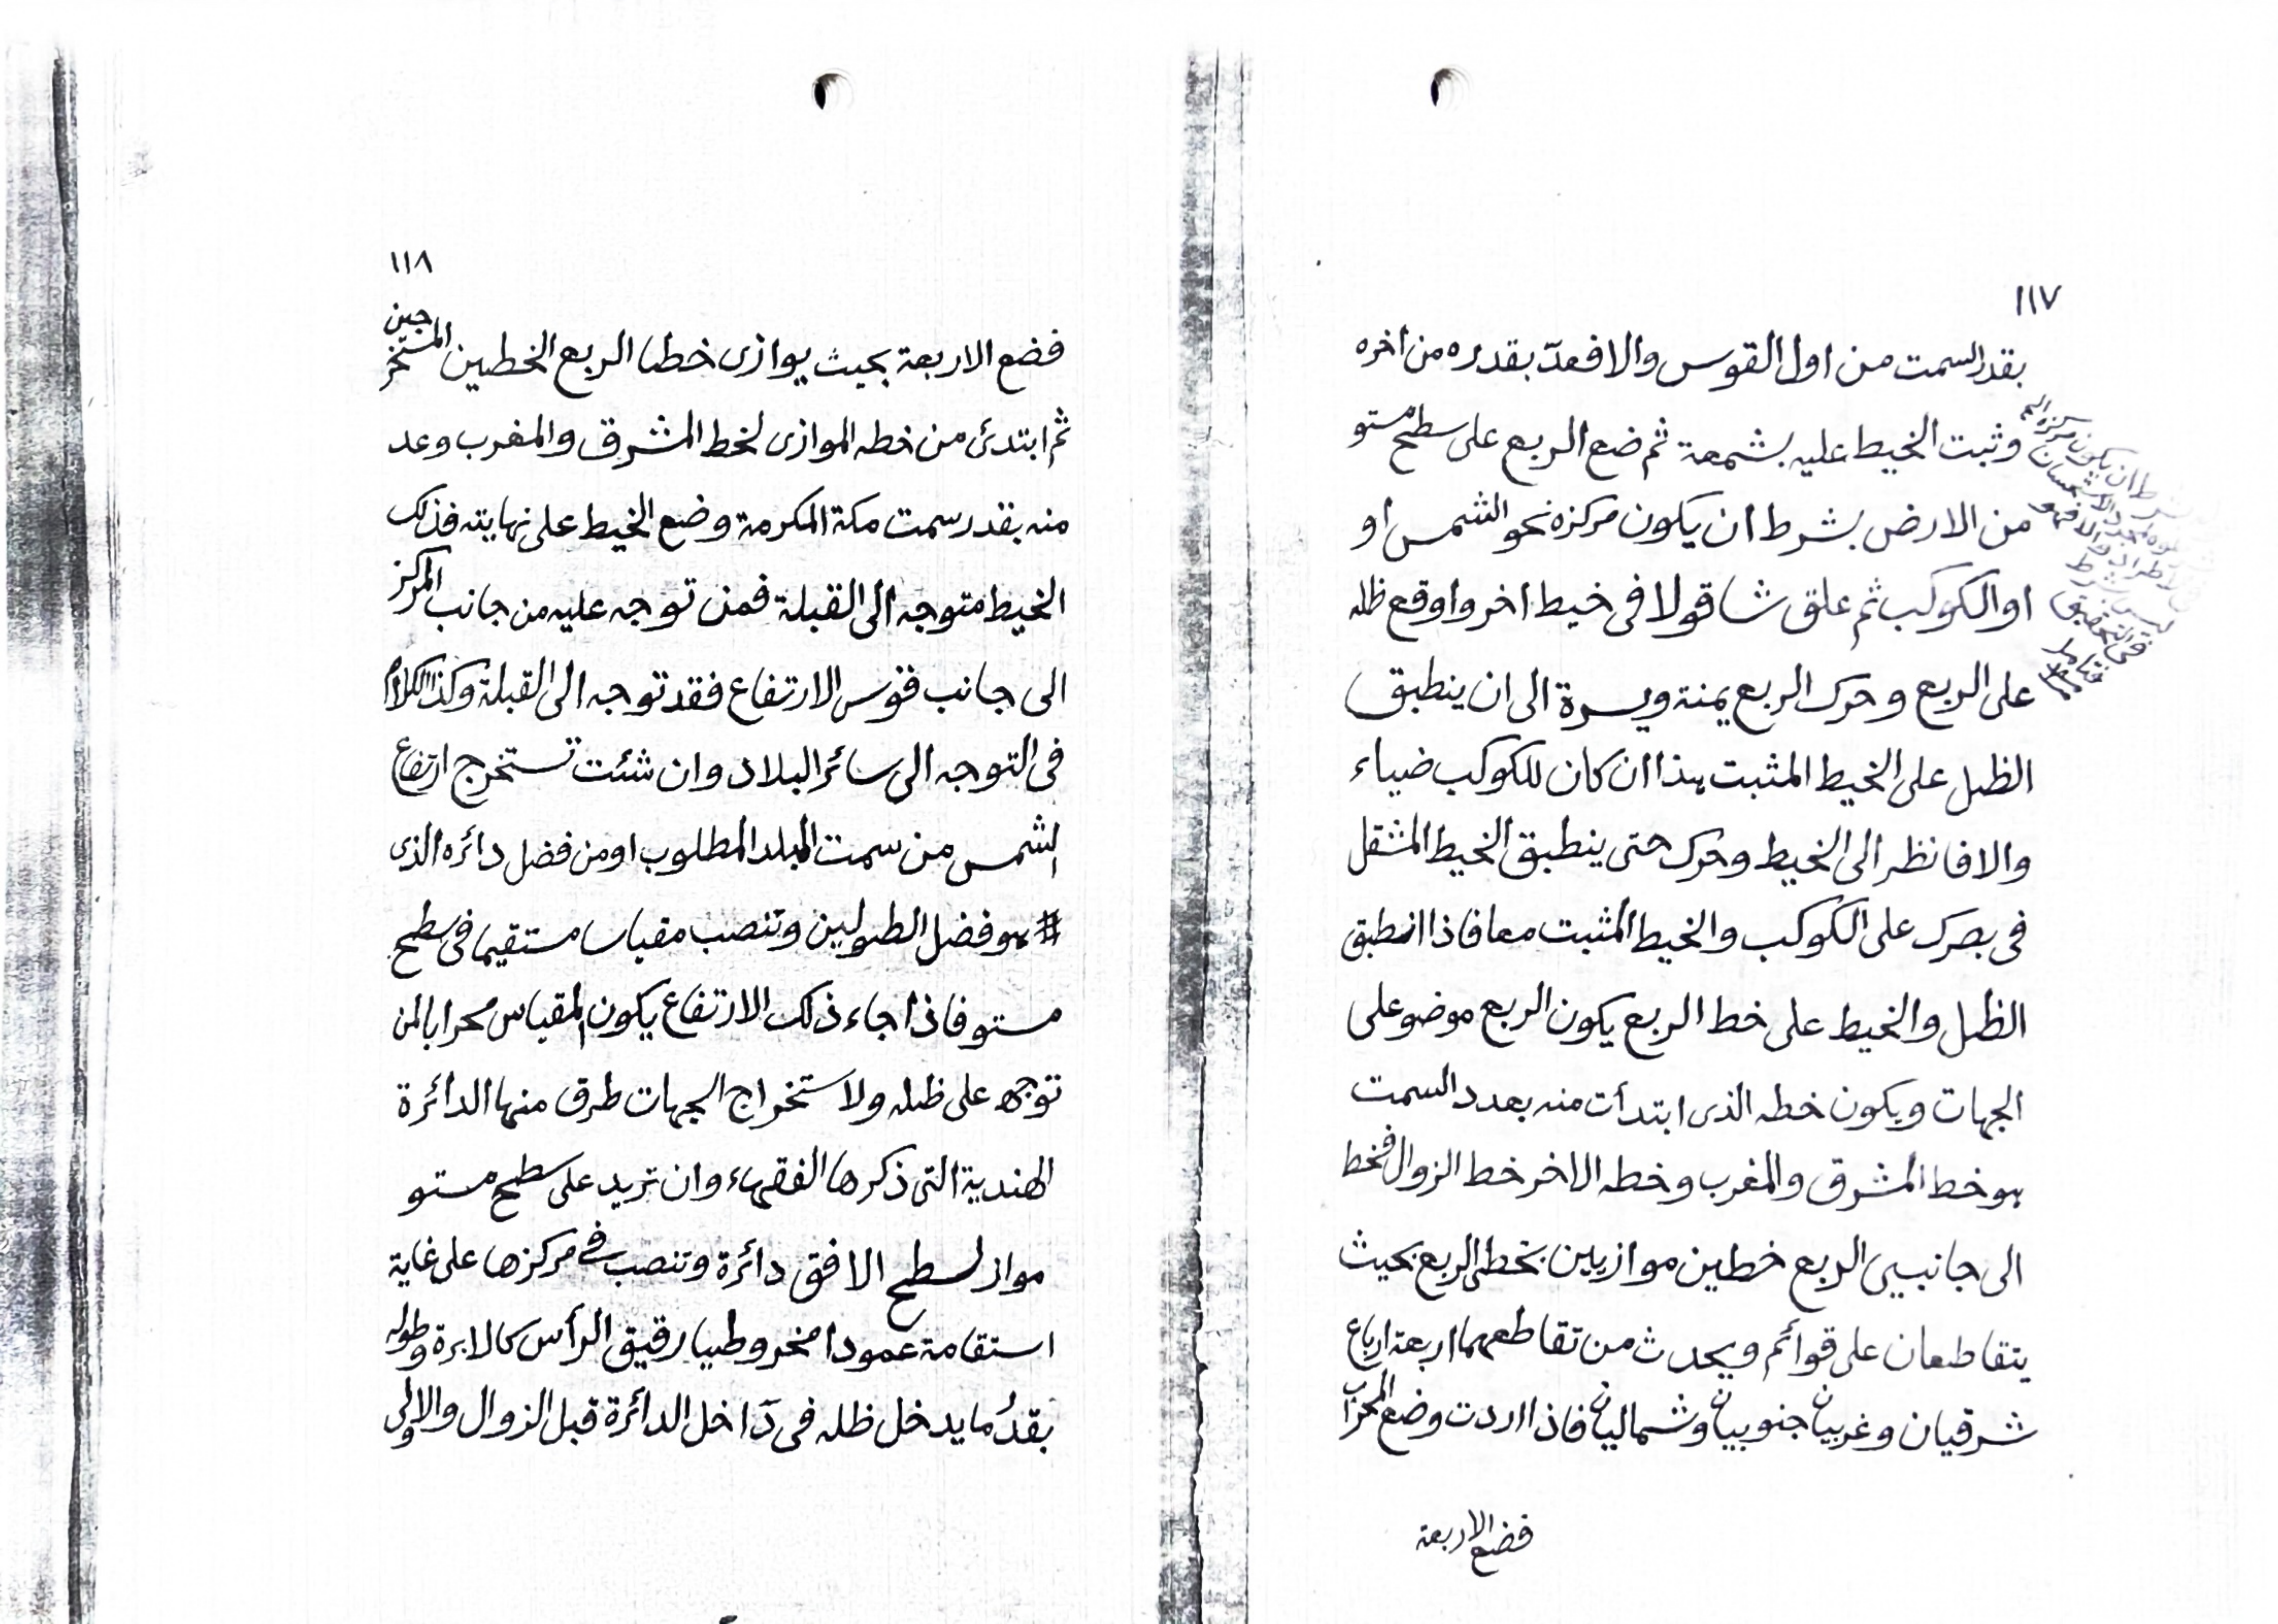 ١١٧
بقدر السمت من اول القوس والا فعدّ بقدره من اخره
وثبت الخيط عليه بشمعة ثم ضع الربع على سطح مستو
من الارض بشرط ان يكون مركزه نحو الشمس او
او الكوكب ثم علق شاقولا فى خيط اخر واوقع ظله
على الربع وحرك الربع يمنة ويسرة الى ان ينطبق
الظل على الخيط المثبت هذا ان كان للكوكب ضياء
والا فانظر الى الخيط وحرك حتى ينطبق الخيط المثقل
فى بصرك على الكوكب والخيط المثبت معا فاذا انطبق
الظل والخيط على خط الربع يكون الربع موضوعلى
الجهات ويكون خطه الذى ابتدأت منه بعدد السمت
هو خط المشرق والمغرب وخطه الاخر خط الزوال فخط
الى جانبيى الربع خطين موازيين بخطى الربع بحيث
يتقاطعان على قوائم ويحدث من تقاطعهما اربعة ارباع
شرقيان وغربيان جنوبيان وشماليان فاذا اردت وضع المحراب
فضع الاربعة
شرط ان يكون مركزه الخ
الاستحسان
والا فهو
ليس بشرط
فى التحقيق
فتأمل
١١٨
فضع الاربعة بحيث يوازى خطا الربع الخطين المستخرجين
ثم ابتدئ من خطه الموازى لخط المشرق والمغرب وعد
منه بقدر سمت مكة المكرمة وضع الخيط على نهايته فذلك
الخيط متوجه الى القبلة فمن توجه عليه من جانب المركز
الى جانب قوس الارتفاع فقد توجه الى القبلة وكذا الكلام
فى التوجه الى سائر البلاد وان شئت تستخرج ارتفاع
الشمس من سمت البلد المطلوب او من فضل دائره الذى
# هو فضل الطولين وتنصب مقياسا مستقيما فى سطح
مستو فاذا جاء ذلك الارتفاع يكون المقياس محرابا لمن
توجه على ظله ولاستخراج الجهات طرق منها الدائرة
الهندية التى ذكرها الفقهاء وان تريد على سطح مستو
مواز لسطح الافق دائرة وتنصب فى مركزها على غاية
استقامة عمودا مخروطيا رقيق الرأس كالابرة وطوله
بقدُ ما يدخل ظله فى دَاخل الدائرة قبل الزوال والاولى